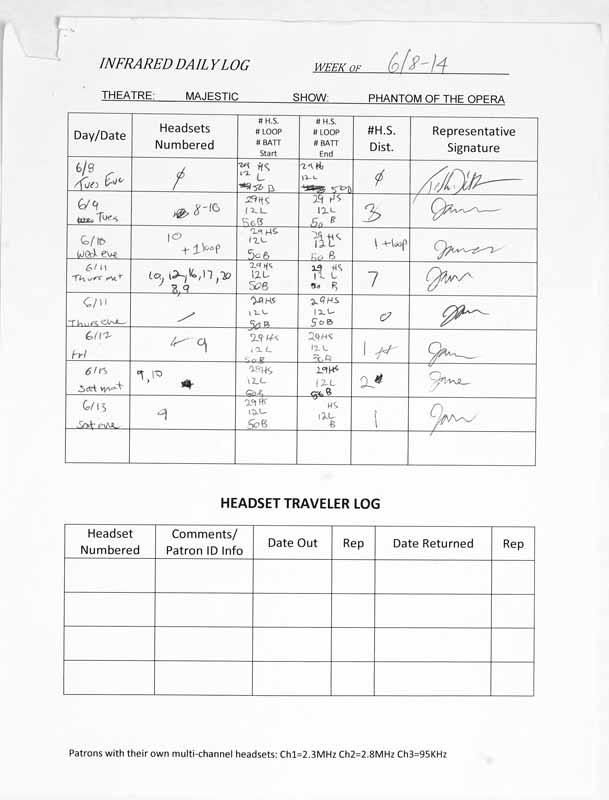 INFRARED DAILY LOG WEEK OF 6/8-14
THEATRE: MAJESTIC SHOW: PHANTOM OF THE OPERA
Day/Date Headsets Numbered # H.S. # LOOP # BATT Start # H.S. # LOOP # BATT End #H.S. Dist. Representative Signature
6/8 Tues Eve ∅ 29 HS 12 L 50 B 29 HS 12 L 50 B ∅
6/9 Tues 8-10 29 HS 12 L 50 B 29 HS 12 L 50 B 3
6/10 Wed eve 10 + 1 loop 29 HS 12 L 50 B 29 HS 12 L 50 B 1 + loop
6/11 Thurs mat 10, 12, 16, 17, 20 8, 9 29 HS 12 L 50 B 29 HS 12 L 50 B 7
6/11 Thurs eve / 29 HS 12 L 50 B 29 HS 12 L 50 B 0
6/12 Fri 9 29 HS 12 L 50 B 29 HS 12 L 1
6/13 Sat mat 9, 10 29 HS 12 L 50 B 29 HS 12 L 50 B 2
6/13 Sat eve 9 29 HS 12 L 50 B HS 12 L B 1
HEADSET TRAVELER LOG
Headset Numbered Comments/ Patron ID Info Date Out Rep Date Returned Rep
Patrons with their own multi-channel headsets: Ch1=2.3MHz Ch2=2.8MHz Ch3=95KHz